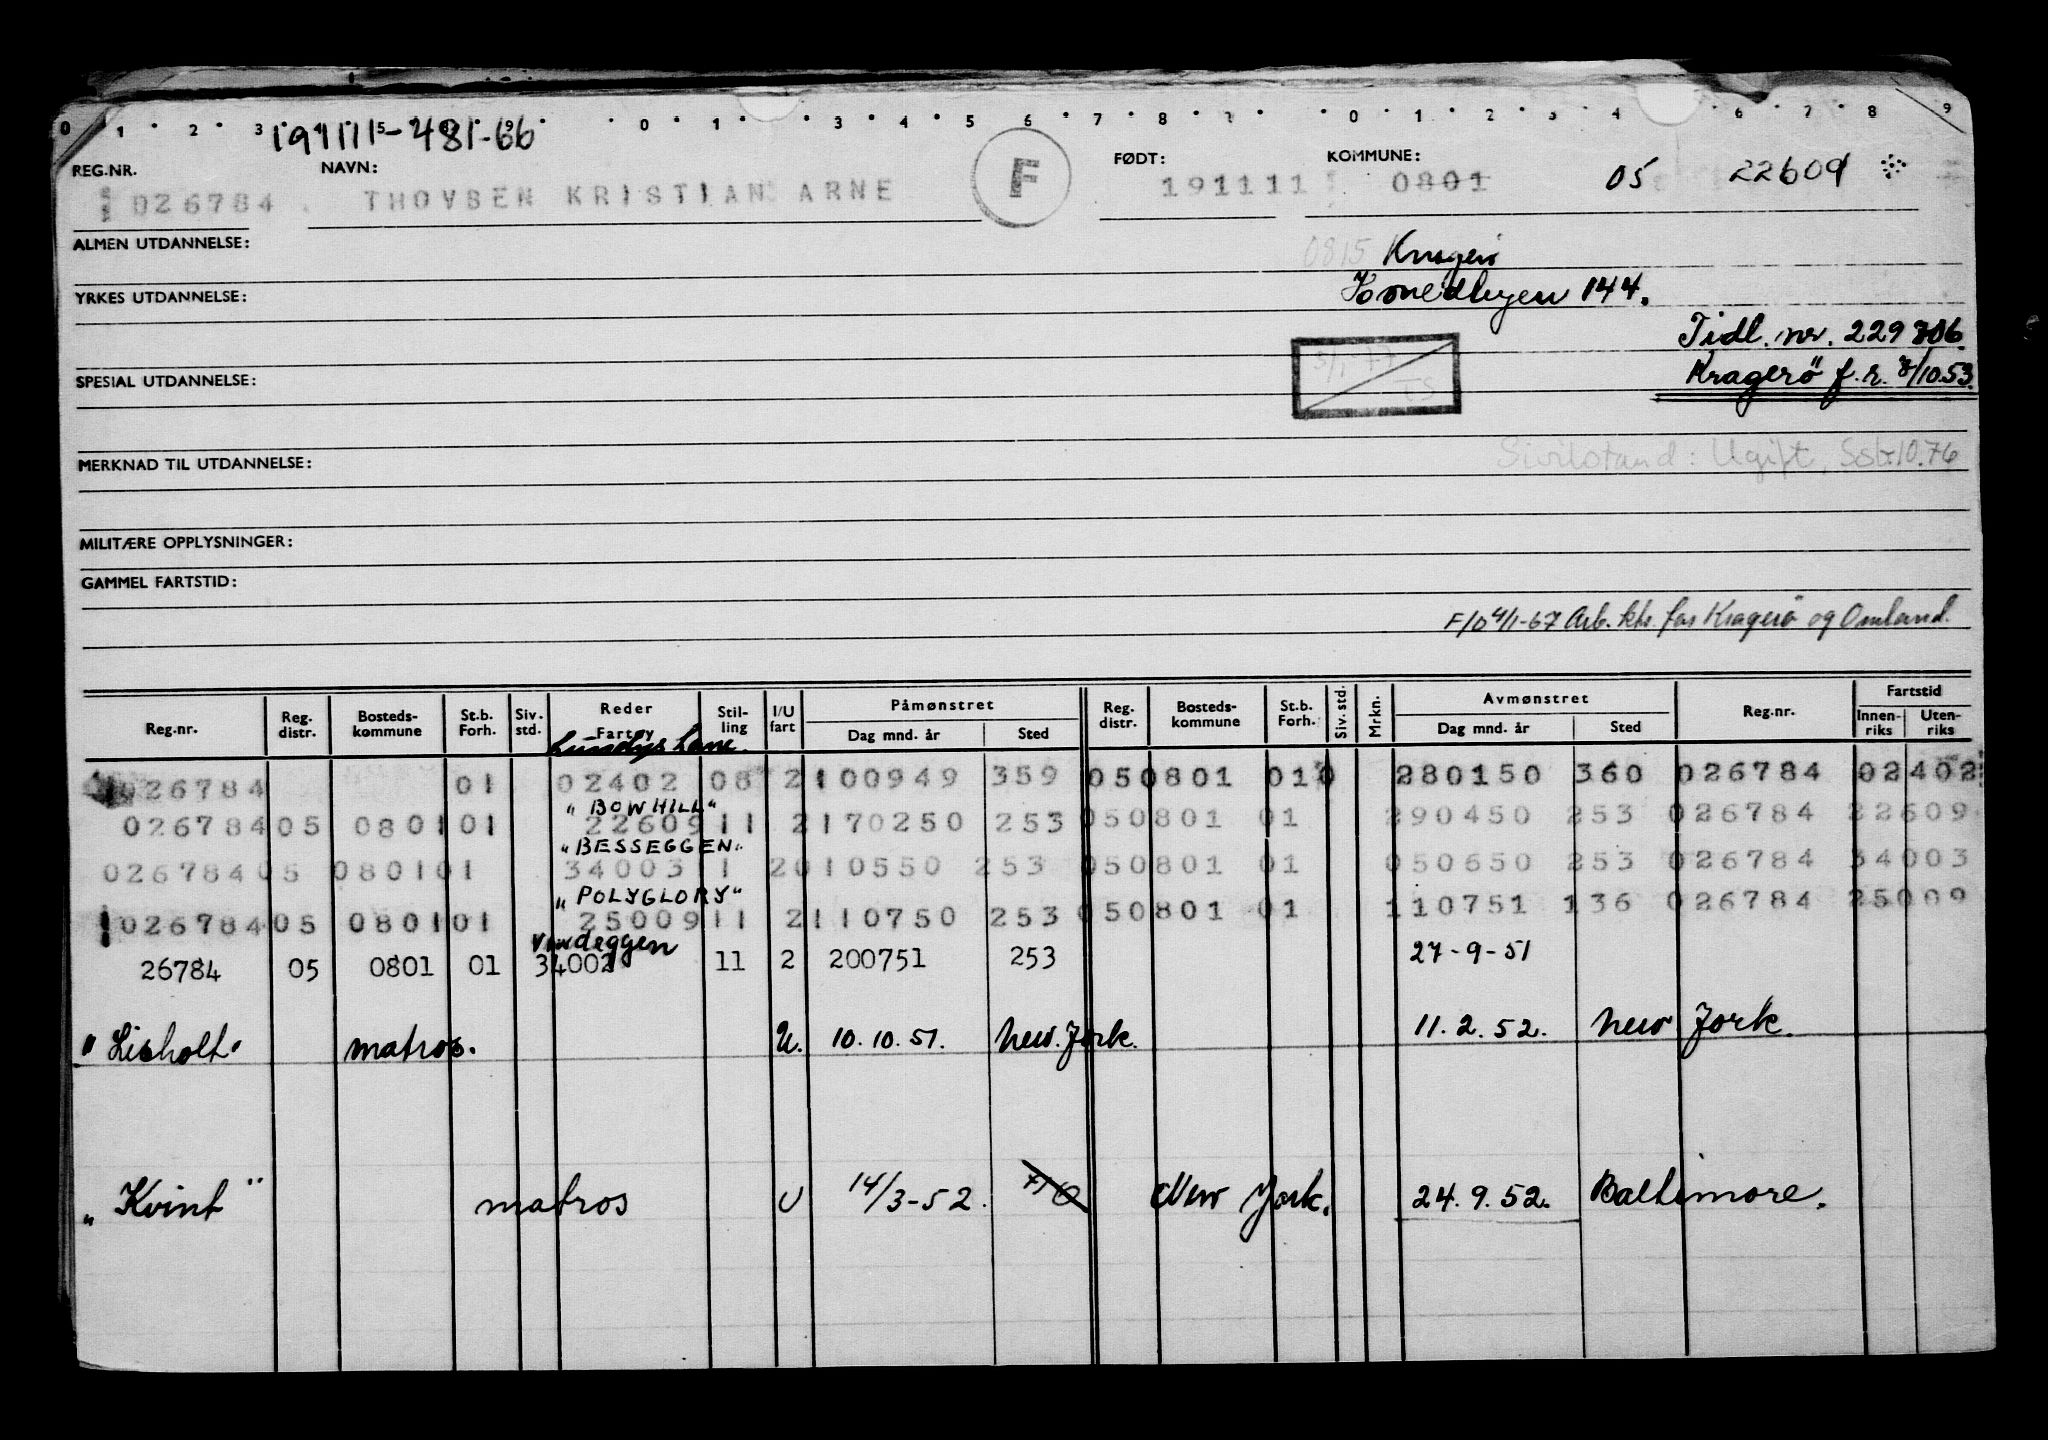 0 1 2 3 0 1 3 4 5 6 7 8 0 1 2 3 4 6 7 8 9
191111-481-66
REG.NR. NAVN: FØDT: KOMMUNE:
026784 THOVSEN KRISTIAN ARNE F 191111 0801 05 22609
ALMEN UTDANNELSE:
0815 Kragerø
YRKES UTDANNELSE:
144.
Tidl. nr. 229306.
SPESIAL UTDANNELSE:
Kragerö f. r. 7/10.53.
MERKNAD TIL UTDANNELSE:
Sivilstand: Ugift,
MILITÆRE OPPLYSNINGER:
GAMMEL FARTSTID:
F/O 4/1-67 Arb. ktr. for Kragerö og Omland.
Reg.nr. Reg. distr. Bosteds-kommune St.b. Forh. Siv. std. Reder Fartøy Stil-ling I/U fart Påmønstret Dag mnd. år Sted Reg. distr. Bosteds-kommune St.b. Forh. Siv. std. Mrkn. Avmønstret Dag mnd. år Sted Reg.nr. Fartstid Innen-riks Uten-riks
Lundys Lane.
026784 01 02402 08 2 100949 359 05 0801 01 0 280150 360 026784 02402
"BOWHILL"
026784 05 0801 01 22609 11 2 170250 253 05 0801 01 290450 253 026784 22609
"BESSEGGEN"
026784 05 0801 01 34003 11 2 010550 253 05 0801 01 050650 253 026784 34003
"POLYGLORY"
026784 05 0801 01 25009 11 2 110750 253 05 0801 01 110751 136 026784 25009
Vindeggen
26784 05 0801 01 34002 11 2 200751 253 27-9-51
"Lisholt" matros. U. 10.10.51. New. Jork. 11.2.52. New Jork.
"Kvint" matros U 14/3-52. New Jork. 24.9.52. Baltimore.